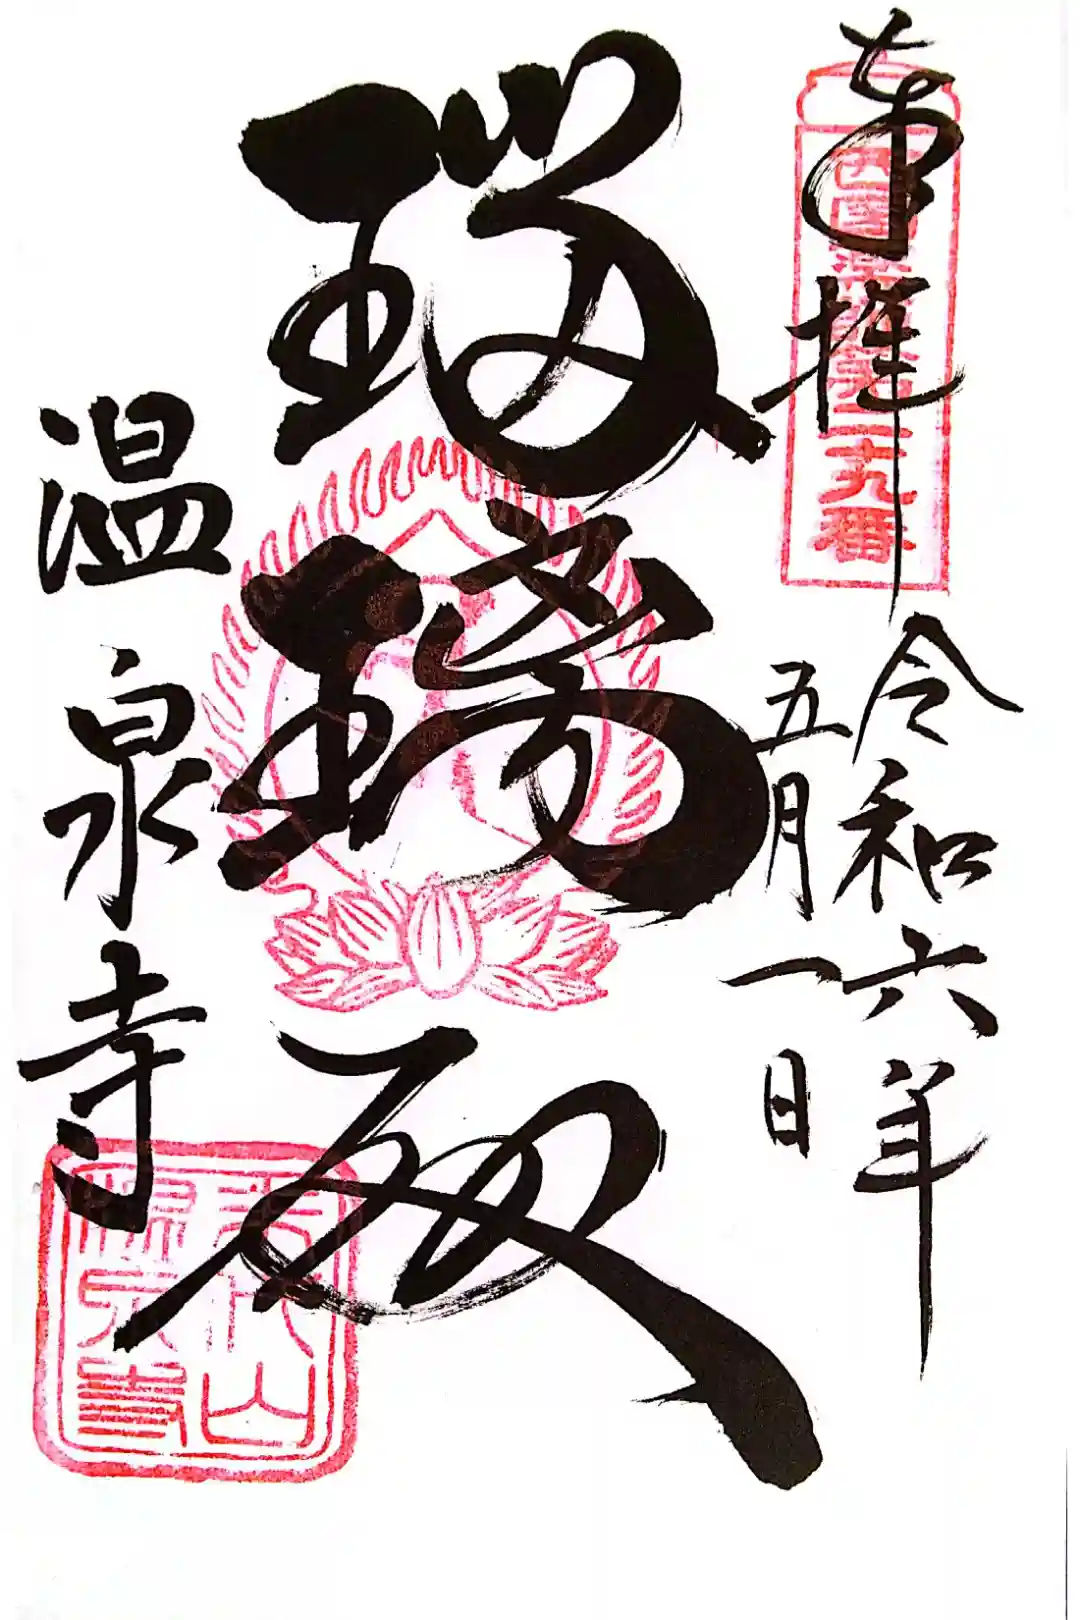 奉拝
西国薬師第二十九番
令和六年
五月一日
瑠璃殿
温泉寺
末代山
温泉寺